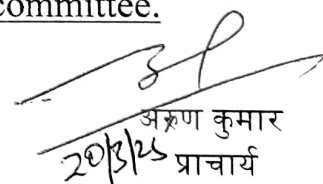 committee.
अरुण कुमार
20/3/25 प्राचार्य